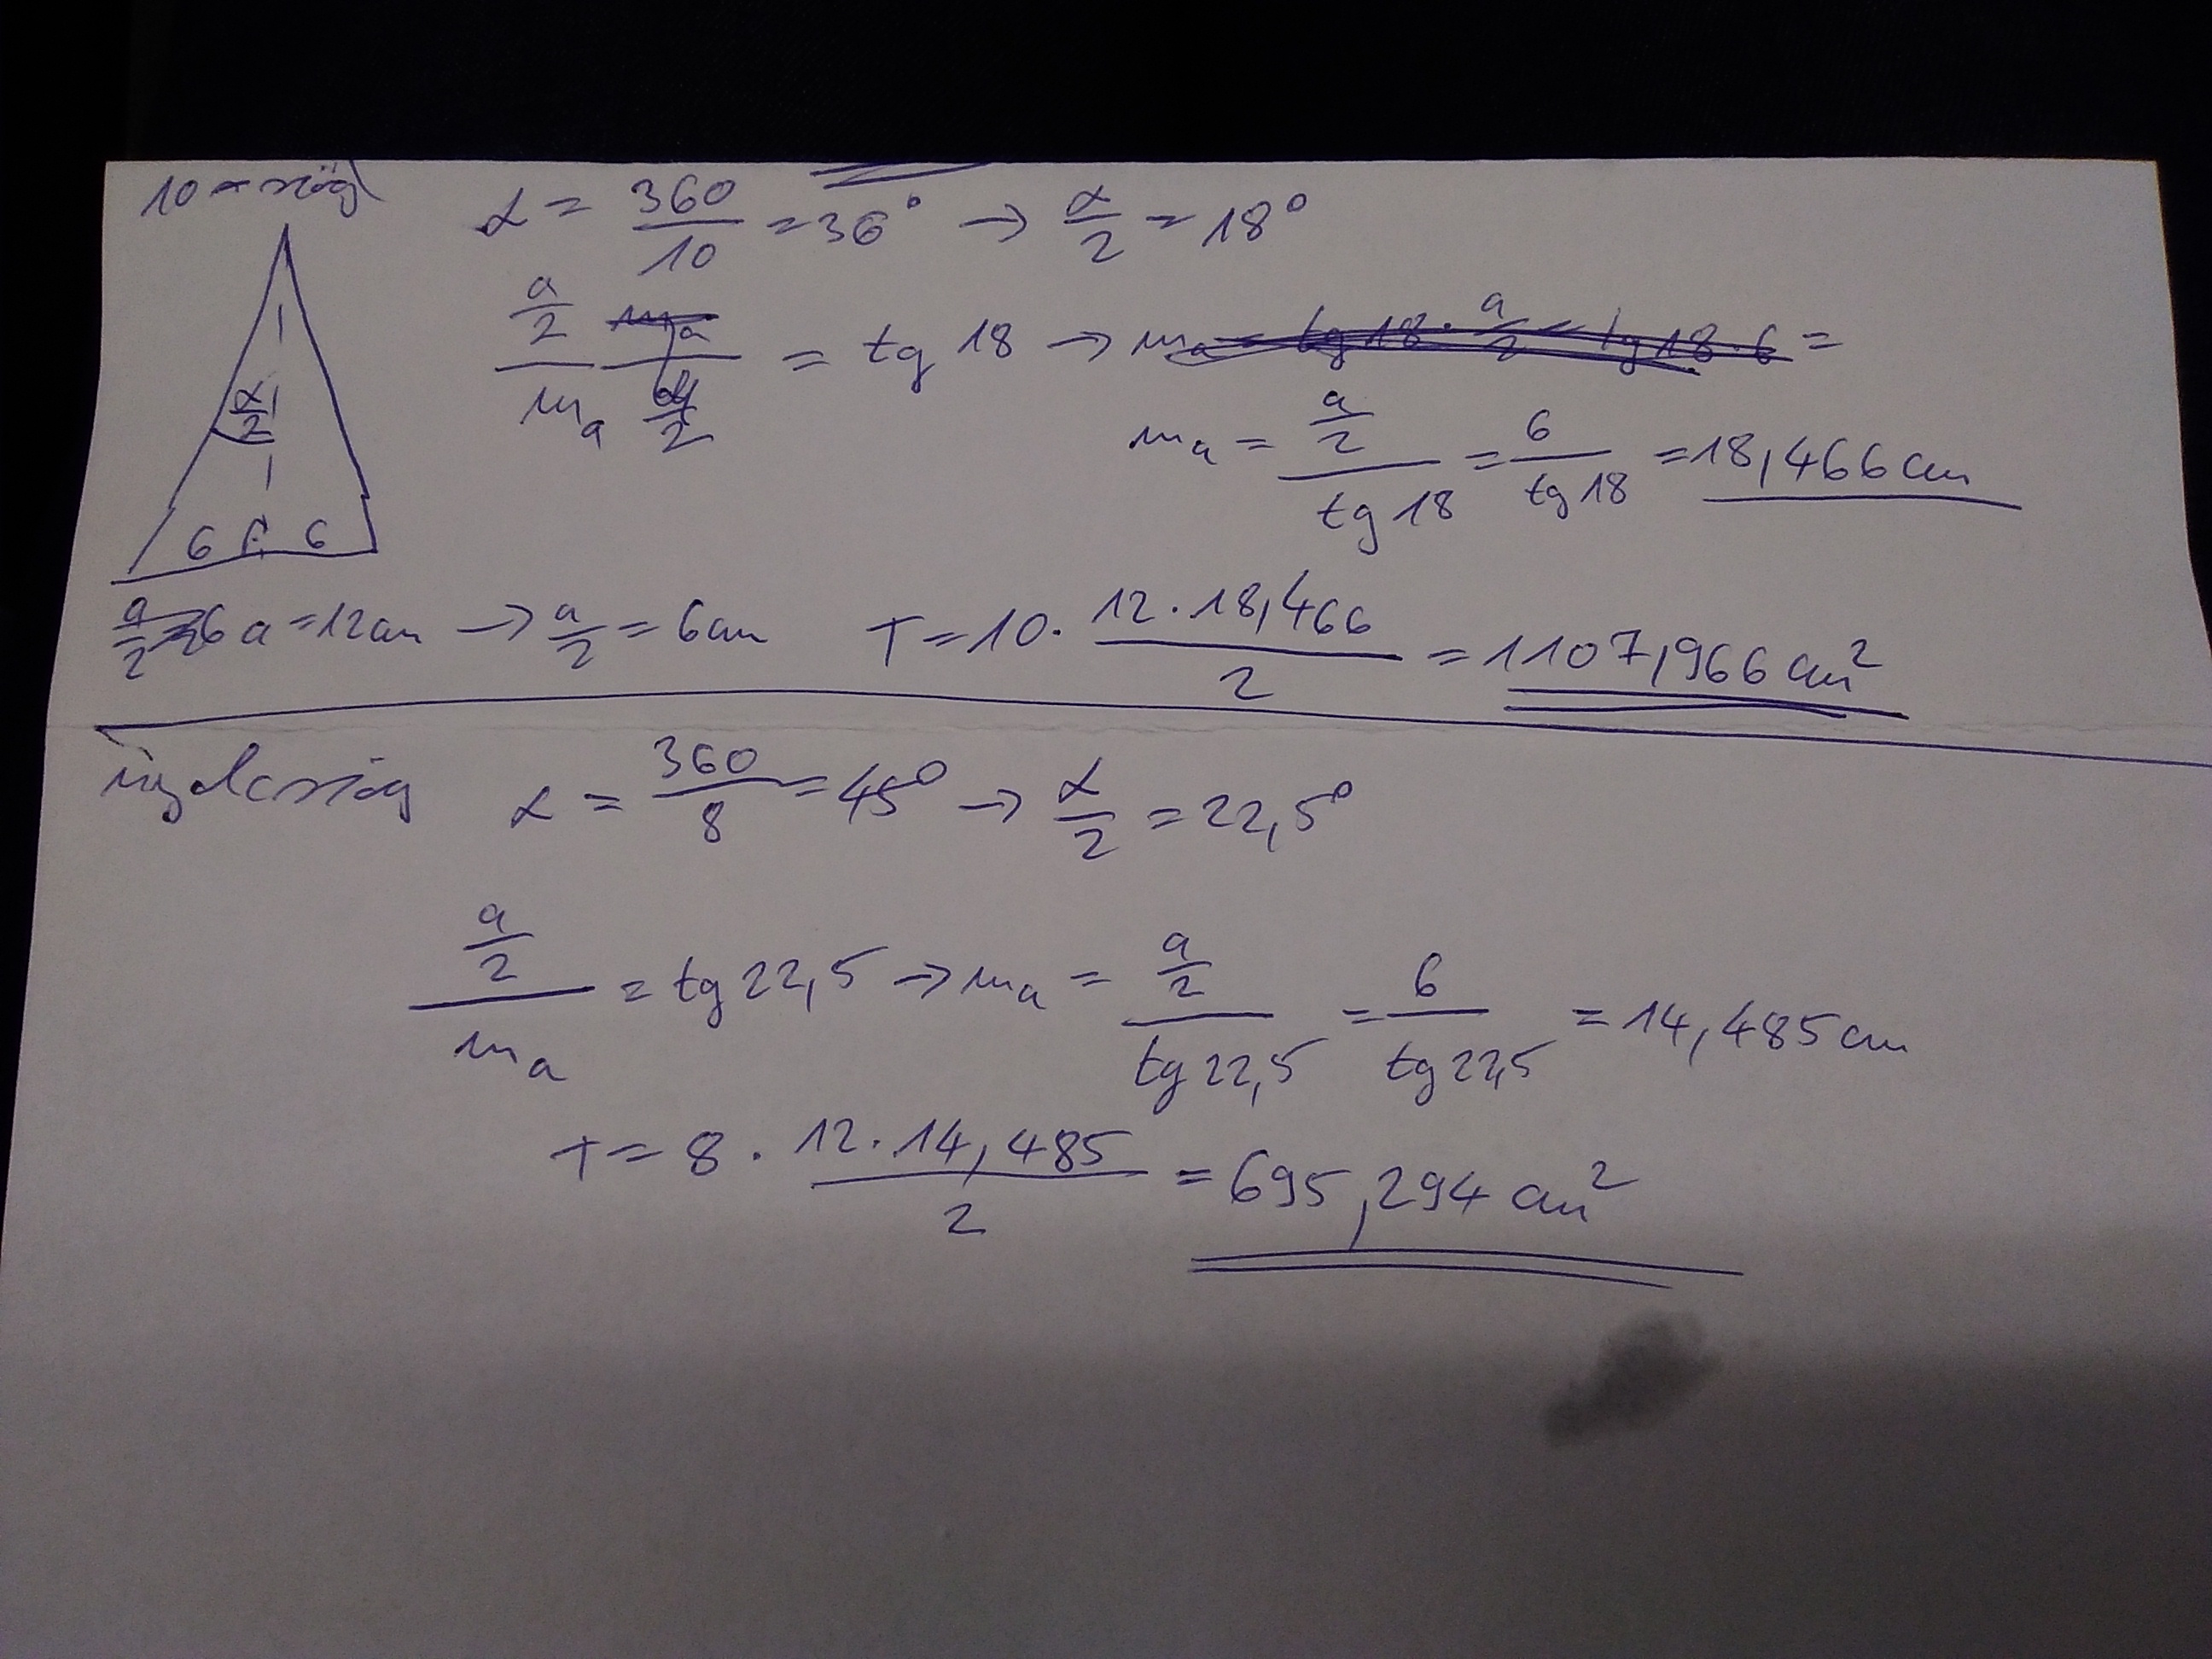 10-szög
α = 360/10 = 36° → α/2 = 18°
a/2 / ma = tg 18 → ma = tg 18 · a/2 = tg 18 · 6 =
α/2
ma = a/2 / tg 18 = 6 / tg 18 = 18,466 cm
6 6
a = 12 cm → a/2 = 6 cm T = 10 · 12 · 18,466 / 2 = 1107,966 cm²
α = 360/8 = 45° → α/2 = 22,5°
a/2 / ma = tg 22,5 → ma = a/2 / tg 22,5 = 6 / tg 22,5 = 14,485 cm
T = 8 · 12 · 14,485 / 2 = 695,294 cm²